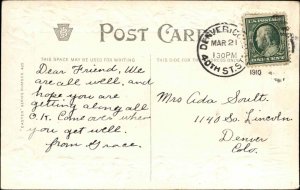 POST CARD
THIS SPACE MAY BE USED FOR WRITING
THIS SIDE IS FOR THE ADDRESS
DENVER, COLO.
MAR 21
130 PM
40TH ST. STA.
1910
Dear Friend, We
are all well, and
hope you are
getting along all
O.K. Come over when
you get well.
from Grace.
Mrs Ada Soult.
1140 So. Lincoln
Denver
Colo.